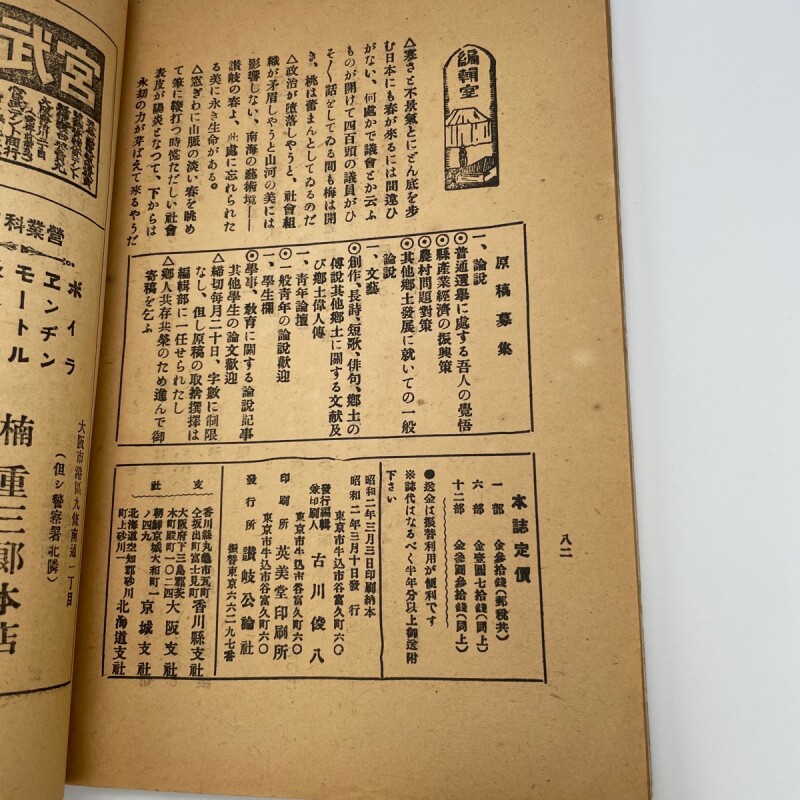 編輯室
△寒さと不景氣とにどん底を步
む日本にも春が來るには間違ひ
がない、何處かで議會とか云ふ
ものが開けて四百頭の議員がひ
そ〳〵話をしてゐる間も梅は開
き、桃は蕾まんとしてゐるのだ
△政治が墮落しやうと、社會組
織が矛盾しやうと山河の美には
影響しない、南海の藝術境――
讃岐の春よ、此處に忘れられた
る美に永き生命がある。
△窓ぎわに山脈の淡い春を眺め
て筆に鞭打つ時慌ただしい社會
表皮が陽炎となつて、下からは
永劫の力が芽ばえて來るやうだ
原稿募集
一、論説
◎普通選擧に處する吾人の覺悟
◎縣產業經濟の振興策
◎農村問題對策
◎其他鄕土發展に就いての一般
論説
一、文藝
◎創作、長詩、短歌、俳句、鄕土の
傳說其他鄕土に關する文献及
び鄕土偉人傳
一、靑年論壇
◎一般靑年の論説歡迎
一、學生欄
◎學事、敎育に關する論説記事
其他學生の論文歡迎
△締切每月二十日、字數に制限
なし、但し原稿の取捨撰擇は
編輯部に一任せられたし
△鄕人共存共榮のため進んで御
寄稿を乞ふ
本誌定價
一部 金參拾錢(郵稅共)
六部 金壹圓七拾錢(同上)
十二部 金參圓參拾錢(同上)
●送金は振替利用が便利です
※誌代はなるべく半年分以上御送附
下さい
昭和二年三月三日印刷納本
昭和二年三月十日發行
東京市牛込市谷富久町六〇
發行編輯
兼印刷人 古川俊八
東京市牛込市谷富久町六〇
印刷所 英美堂印刷所
東京市牛込市谷富久町六〇
發行所 讃岐公論社
振替東京六六二九七番
支社
香川縣丸龜市瓦町
仝坂出町富士見町 香川縣支社
大阪府下三島郡茨
木町殿町一〇二四 大阪支社
朝鮮京城大和町一
ノ四九 京城支社
北海道空知郡砂川
町上砂川一 北海道支社
八二
宮武
營業科
ボイラ
エンヂン
モートル
大阪市港區九條南通一丁目
(但シ警察署北隣)
楠重三郎本店